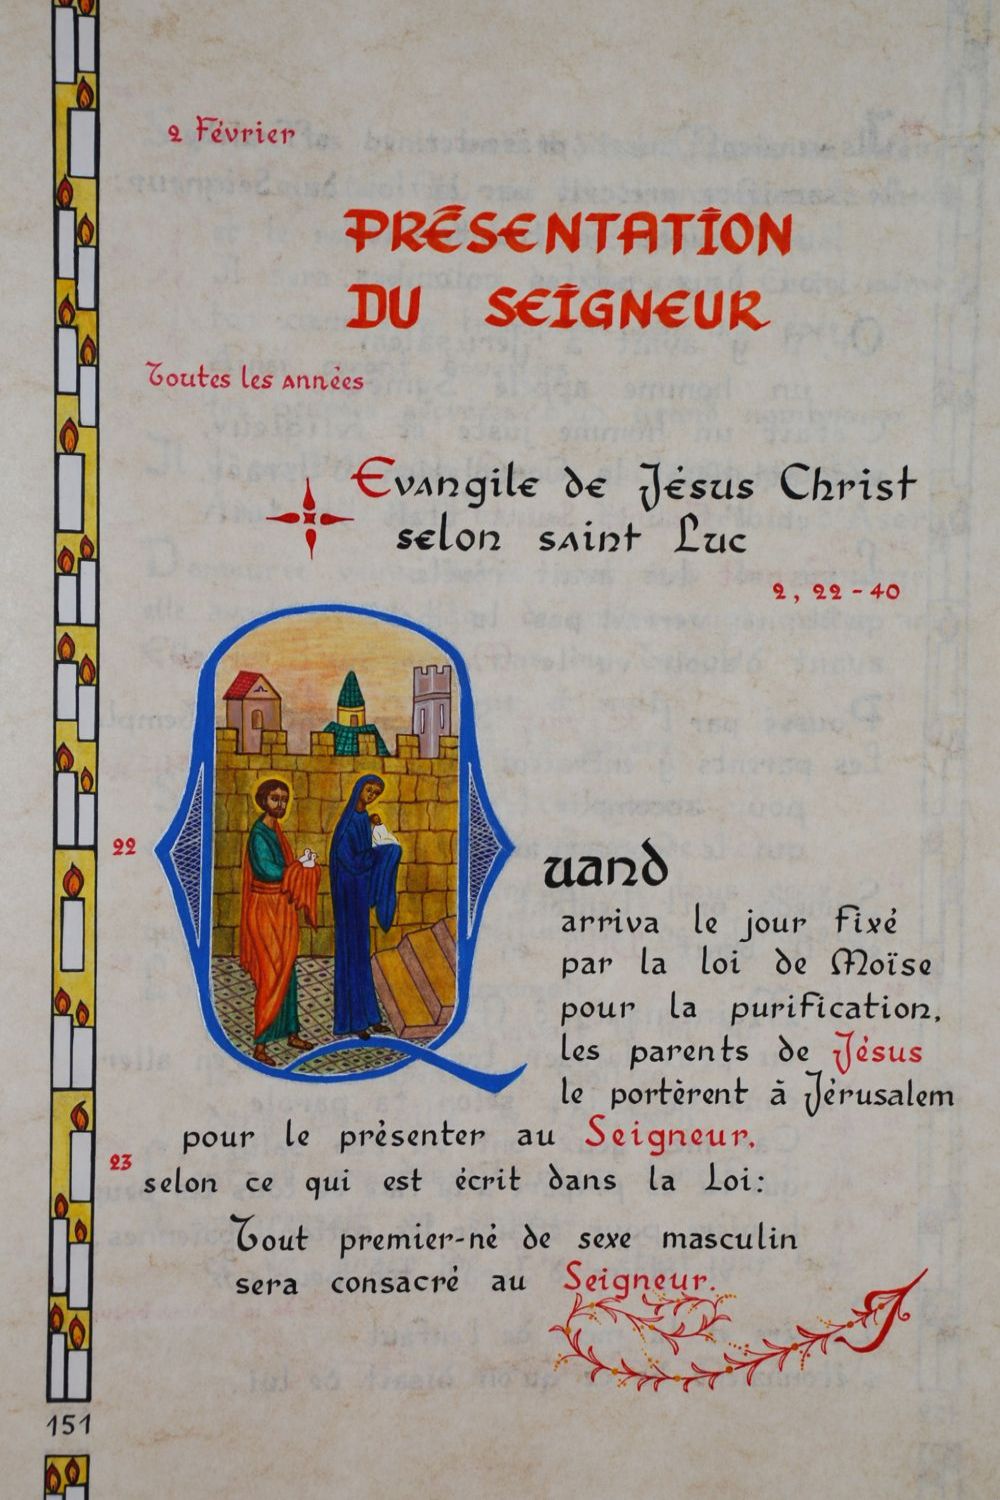 2 Février
PRÉSENTATION
DU SEIGNEUR
Toutes les années
Evangile de Jésus Christ
selon saint Luc
2, 22-40
22
Quand
arriva le jour fixé
par la loi de Moïse
pour la purification,
les parents de Jésus
le portèrent à Jérusalem
pour le présenter au Seigneur,
23
selon ce qui est écrit dans la Loi:
Tout premier-né de sexe masculin
sera consacré au Seigneur.
151